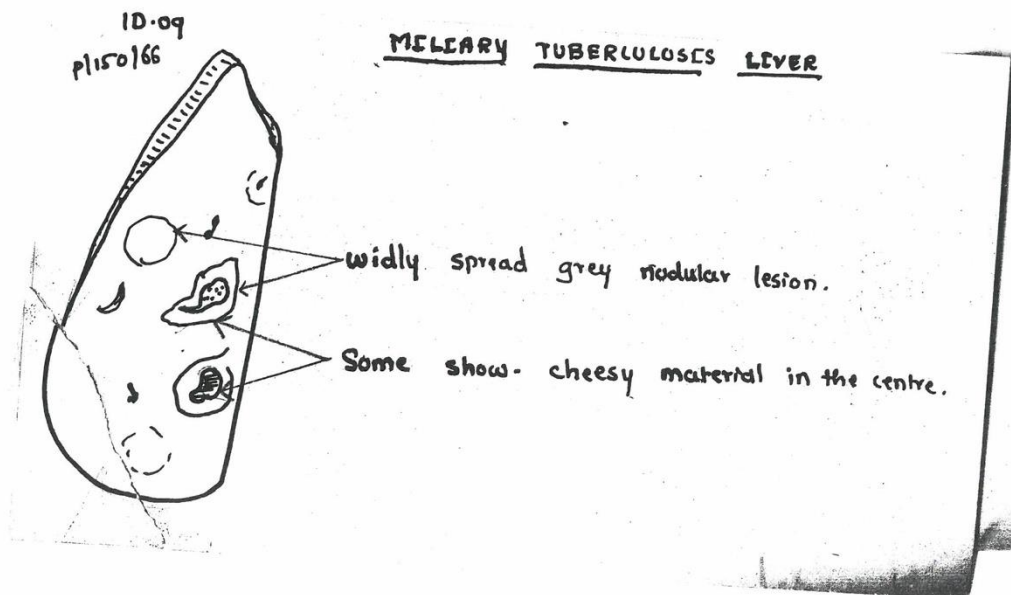 ID.09
P/150/66
MILIARY TUBERCULOSIS LIVER
widly spread grey nodular lesion.
Some show- cheesy material in the centre.